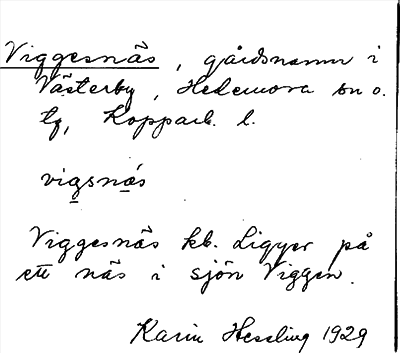 Viggesnäs, gårdsnamn i
Västerby, Hedemora sn o.
tg, Kopparb. l.
vigsnäs
Viggesnäs kb. Ligger på
ett näs i sjön Viggen.
Karin Hessling 1929